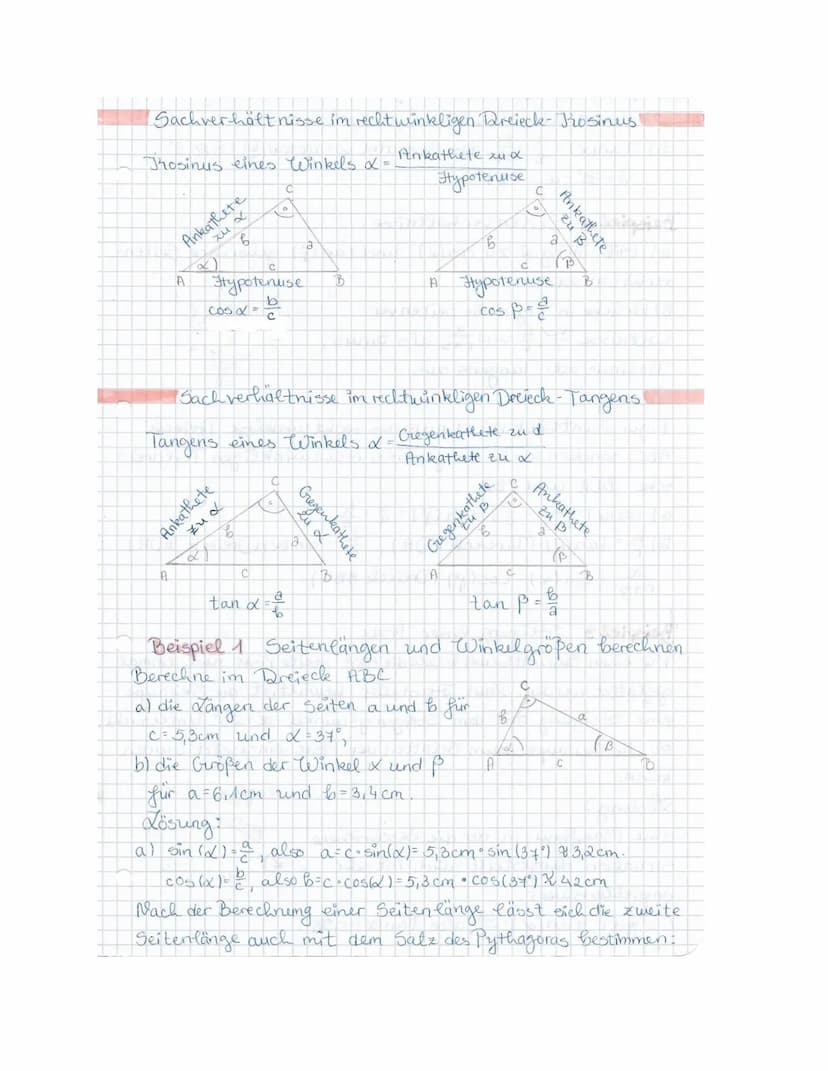 Sachverhältnisse im rechtwinkligen Dreieck - Kosinus
Kosinus eines Winkels α = Ankathete zu α / Hypotenuse
C C
Ankathete zu α Ankathete zu β
b a b a
α c c β
A Hypotenuse B A Hypotenuse B
cos α = b/c cos β = a/c
Sachverhältnisse im rechtwinkligen Dreieck - Tangens
Tangens eines Winkels α = Gegenkathete zu α / Ankathete zu α
C C
Ankathete zu α Gegenkathete zu α Gegenkathete zu β Ankathete zu β
b a b a
α β
A c B A c B
tan α = a/b tan β = b/a
Beispiel 1 Seitenlängen und Winkelgrößen berechnen
Berechne im Dreieck ABC
C
a) die Längen der Seiten a und b für
b a
c = 5,3cm und α = 37°,
α β
b) die Größen der Winkel α und β
A c B
für a = 6,1cm und b = 3,4cm.
Lösung:
a) sin(α) = a/c, also a = c · sin(α) = 5,3cm · sin(37°) ≈ 3,2cm.
cos(α) = b/c, also b = c · cos(α) = 5,3cm · cos(37°) ≈ 42cm
Nach der Berechnung einer Seitenlänge lässt sich die zweite
Seitenlänge auch mit dem Satz des Pythagoras bestimmen: